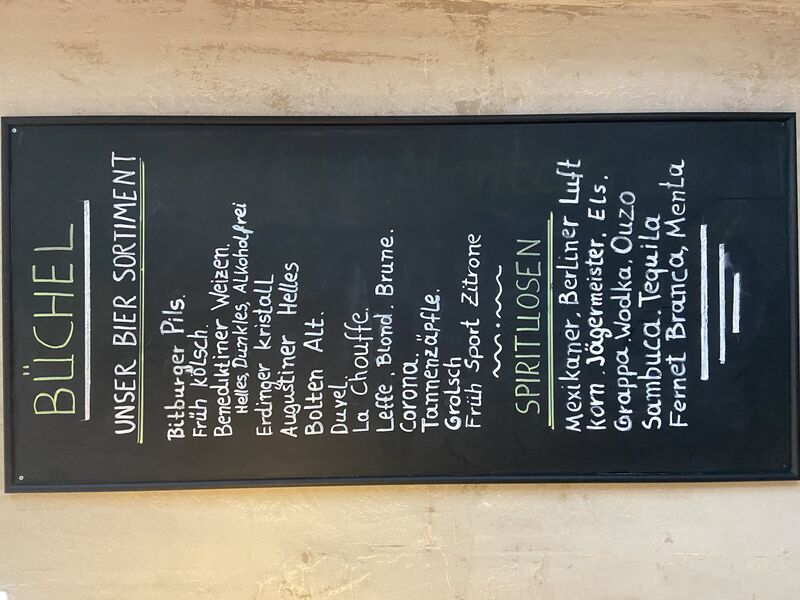 BÜCHEL
UNSER BIER SORTIMENT
Bitburger Pils.
Früh Kölsch.
Benediktiner Weizen.
Helles, Dunkles, Alkoholfrei
Erdinger Kristall
Augustiner Helles
Bolten Alt.
Duvel.
La Chouffe.
Leffe, Blond. Brune.
Corona.
Tannenzäpfle.
Grolsch
Früh Sport Zitrone
SPIRITUOSEN
Mexikaner, Berliner Luft
Korn. Jägermeister. Els.
Grappa. Wodka, Ouzo
Sambuca. Tequila
Fernet Branca, Menta